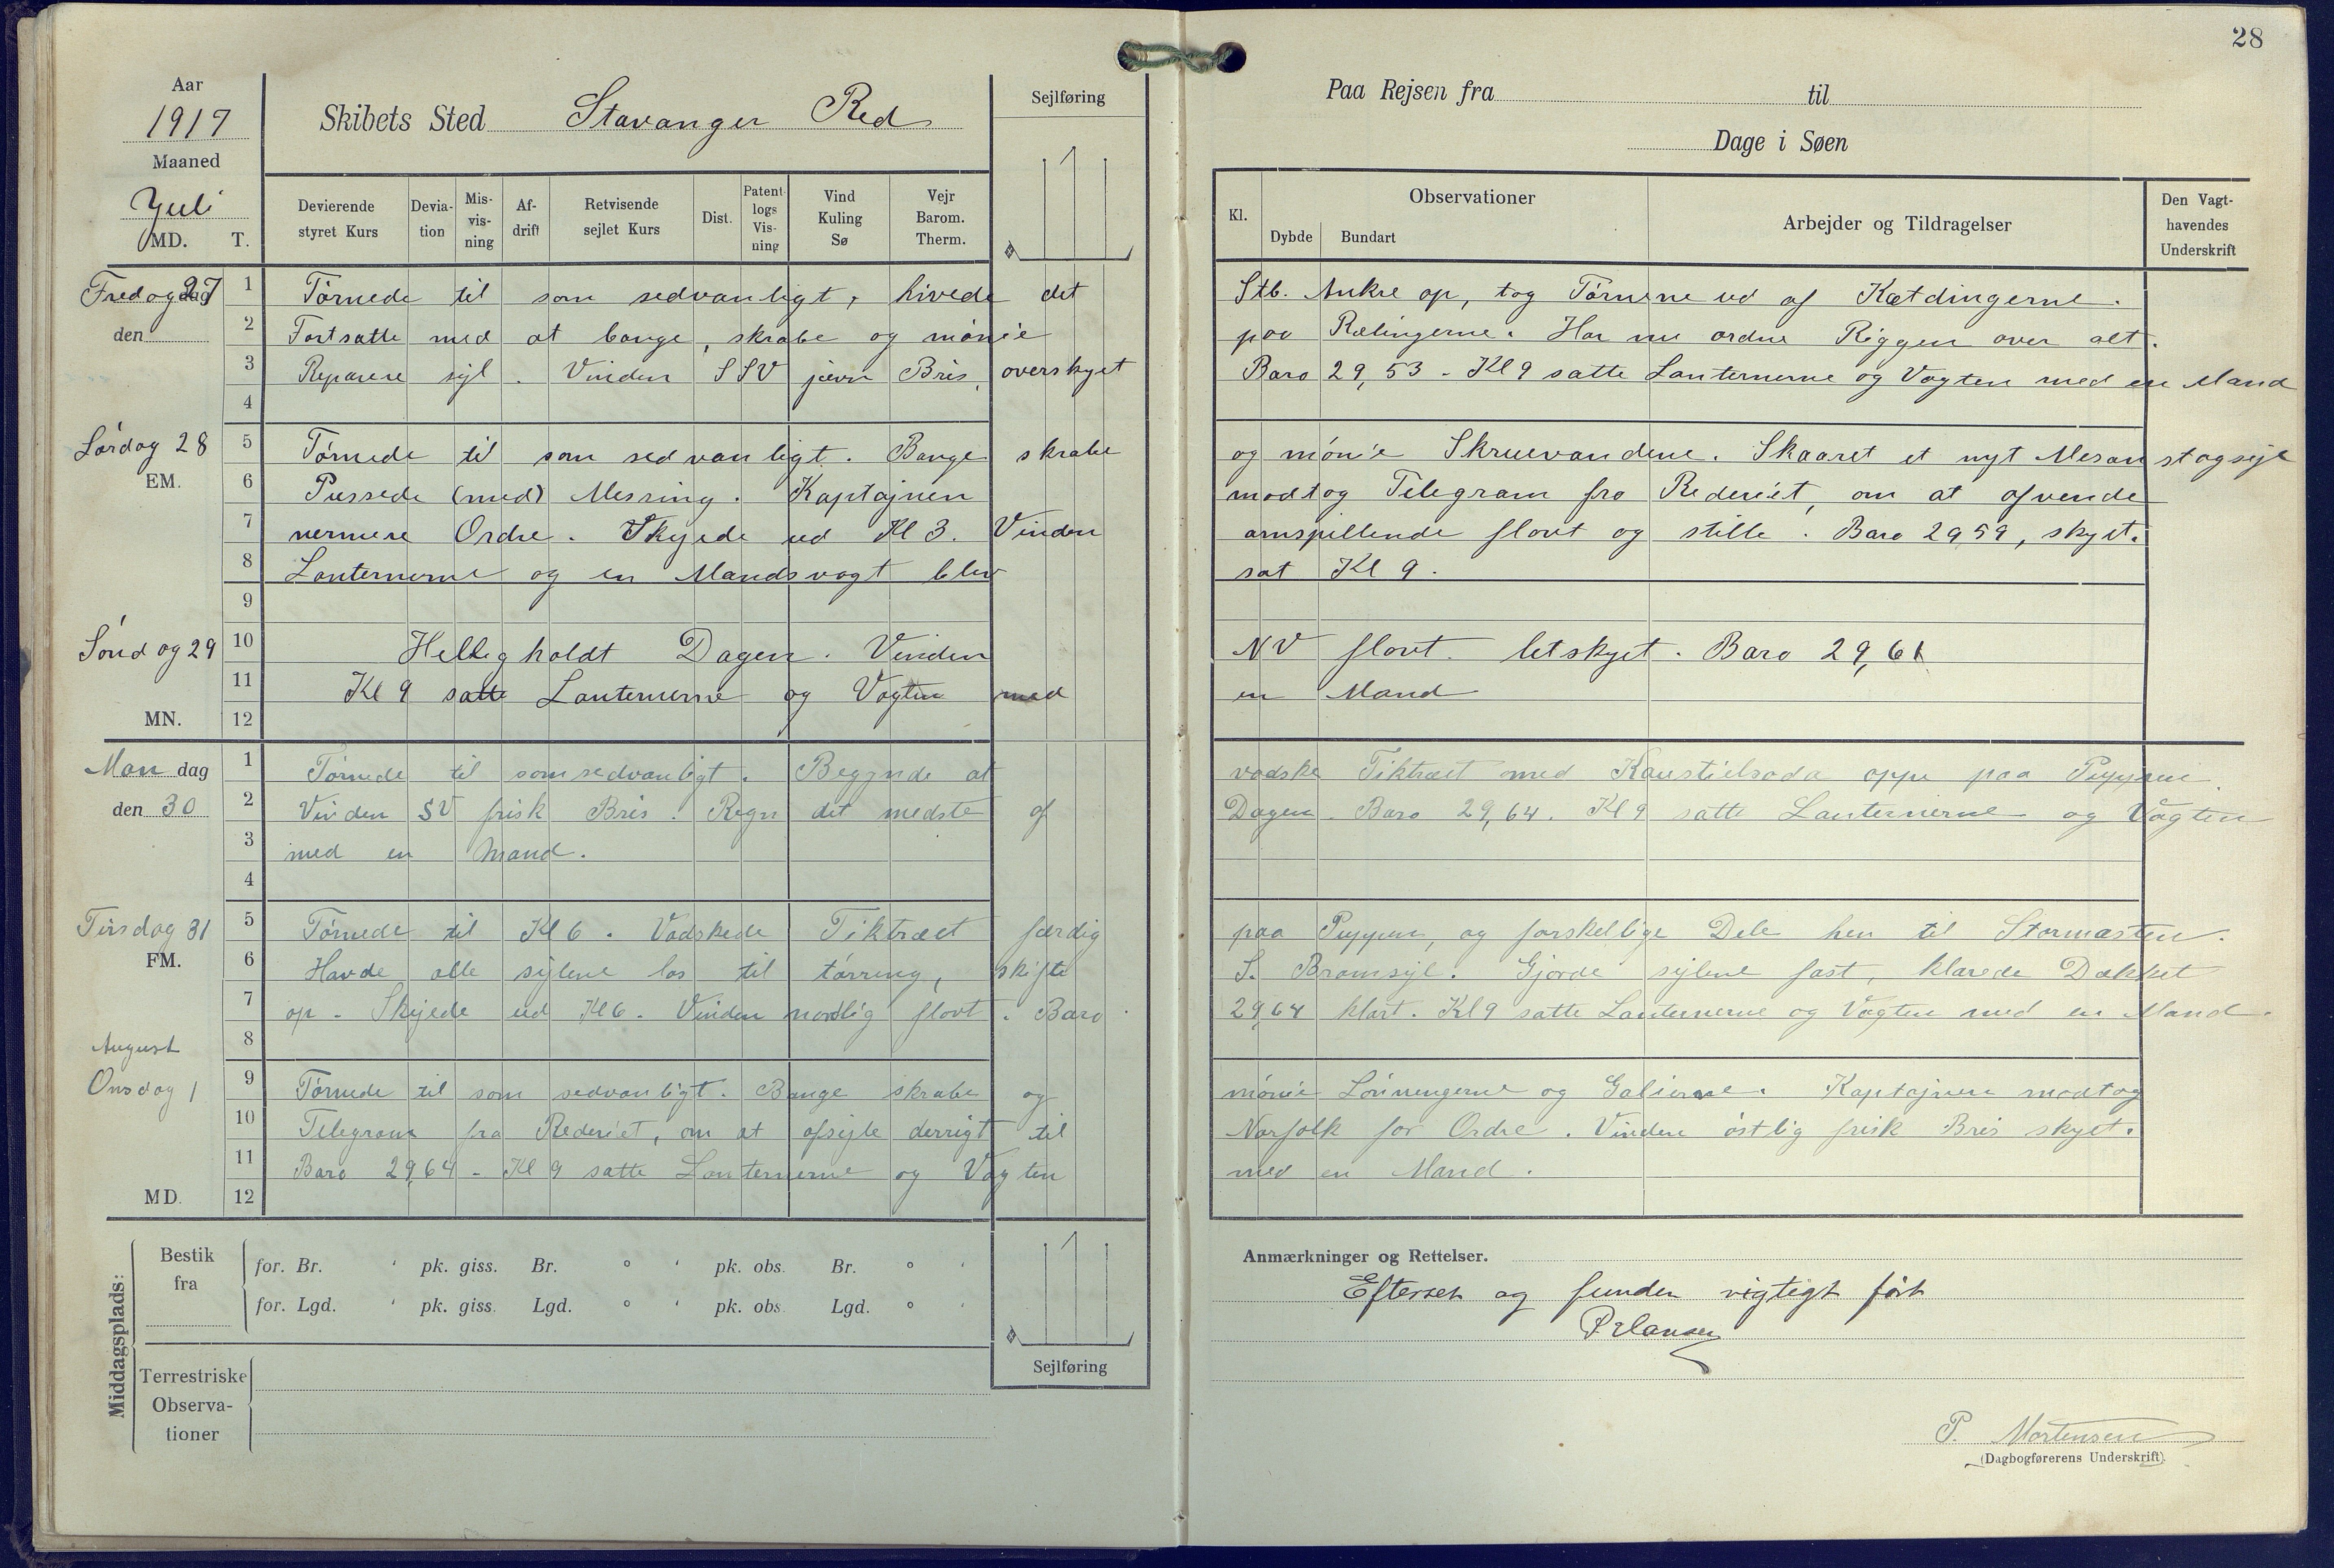 28
Aar
1917
Maaned
Juli
MD. T.
Skibets Sted Stavanger Red
Sejlføring
Paa Rejsen fra til
Dage i Søen
Devierende styret Kurs
Deviation
Misvisning
Afdrift
Retvisende sejlet Kurs
Dist.
Patentlogs Visning
Vind Kuling Sø
Vejr Barom. Therm.
Kl.
Observationer
Dybde Bundart
Arbejder og Tildragelser
Den Vagthavendes Underskrift
Fredag 27
den
1 Törnede til som sedvanligt, hivede det Stb. Anker op, tog Törnene ud af Kætdingerne.
2 Fortsatte med at bange, skrabe og mönie paa Rælingerne. Har nu ordne Riggen over alt.
3 Reparere sejl. Vinden SSV jævn Bris, overskyet Baro 29,53 - Kl 9 satte Lanternerne og Vagten med en Mand
4
Lørdag 28
EM.
5 Törnede til som sedvanligt. Bange skrabe og mönie Skruevandene. Skaaret et nyt Mesanstagsejl
6 Pussede (med) Messing. Kaptajnen modtog Telegram fra Rederiet, om at afvende
7 nermere Ordre. Skejede ud Kl 3. Vinden omspillende flovt og stille. Baro 2959, skyet.
8 Lanternerne og en Mandsvagt blev sat Kl 9.
9
Sönd ag 29
10 Hellig holdt Dagen. Vinden NV flovt. letskyet. Baro 29,61
11 Kl 9 satte Lanternerne og Vagten med en Mand
MN. 12
Man dag
den 30
1 Törnede til som sedvanligt. Begynde at vadske Tiktræet med Kaustielsoda oppe paa Puppen.
2 Vinden SV frisk Bris. Regn det medste af Dagen. Baro 29,64. Kl 9 satte Lanternerne og Vagten
3 med en Mand.
4
Tirsdag 31
FM.
5 Törnede til Kl 6. Vadskede Tiktræet færdig paa Puppen, og forskellige Dele hen til Stormasten.
6 Havde alle sejlene los til törring, skifte S. Bramsejl. Gjorde sejlene fast, klarede Dækket
7 op. Skejede ud Kl 6. Vinden nordlig flovt. Baro 29,64 klart. Kl 9 satte Lanternerne og Vagten med en Mand.
8
August
Onsdag 1
9 Törnede til som sedvanligt. Bange skrabe og mönie Lönningerne og Galierne. Kaptajnen modtog
10 Telegram fra Rederiet, om at afsejle derrigt til Norfolk for Ordre. Vinden östlig frisk Bris skyet.
11 Baro 29,64 - Kl 9 satte Lanternerne og Vagten med en Mand.
MD. 12
Middagsplads:
Bestik fra
for. Br. ' pk. giss. Br. ° ' pk. obs. Br. ° '
for. Lgd. ' pk. giss. Lgd. ° ' pk. obs. Lgd. ° '
Sejlføring
Terrestriske Observationer
Anmærkninger og Rettelser.
Efterset og funden rigtigt fört
P. Mortensen
(Dagbogførerens Underskrift)